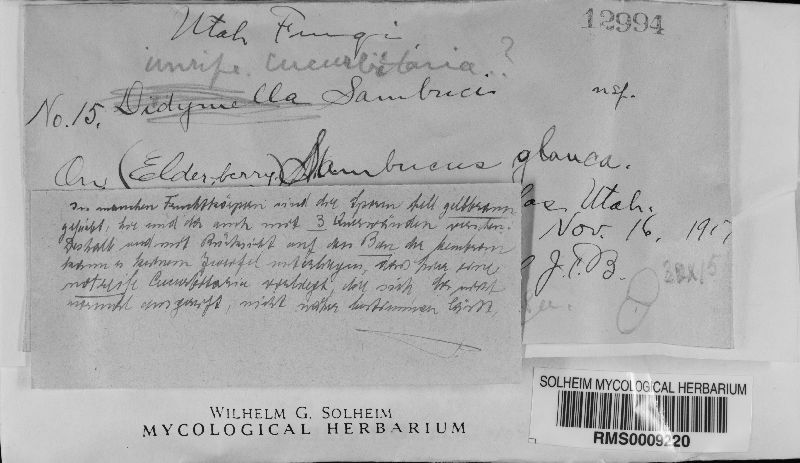 12994
Utah Fungi
unripe Cucurbitaria?
No. 15. Didymella Sambuci nsp.
On (Elderberry) Sambucus glauca.
Utah.
Nov. 16, 191
J.T.B.
In manchen Fruchtkörpern sind die Sporen hell gelbbraun
gefärbt, hie und da auch mit 3 Querwänden versehen.
Deshalb und mit Rücksicht auf den Bau der
kann es keinem Zweifel unterliegen, dass hier eine
notreife Cucurbitaria vorliegt, die sich
nicht näher bestimmen lässt.
WILHELM G. SOLHEIM
MYCOLOGICAL HERBARIUM
SOLHEIM MYCOLOGICAL HERBARIUM
RMS0009220